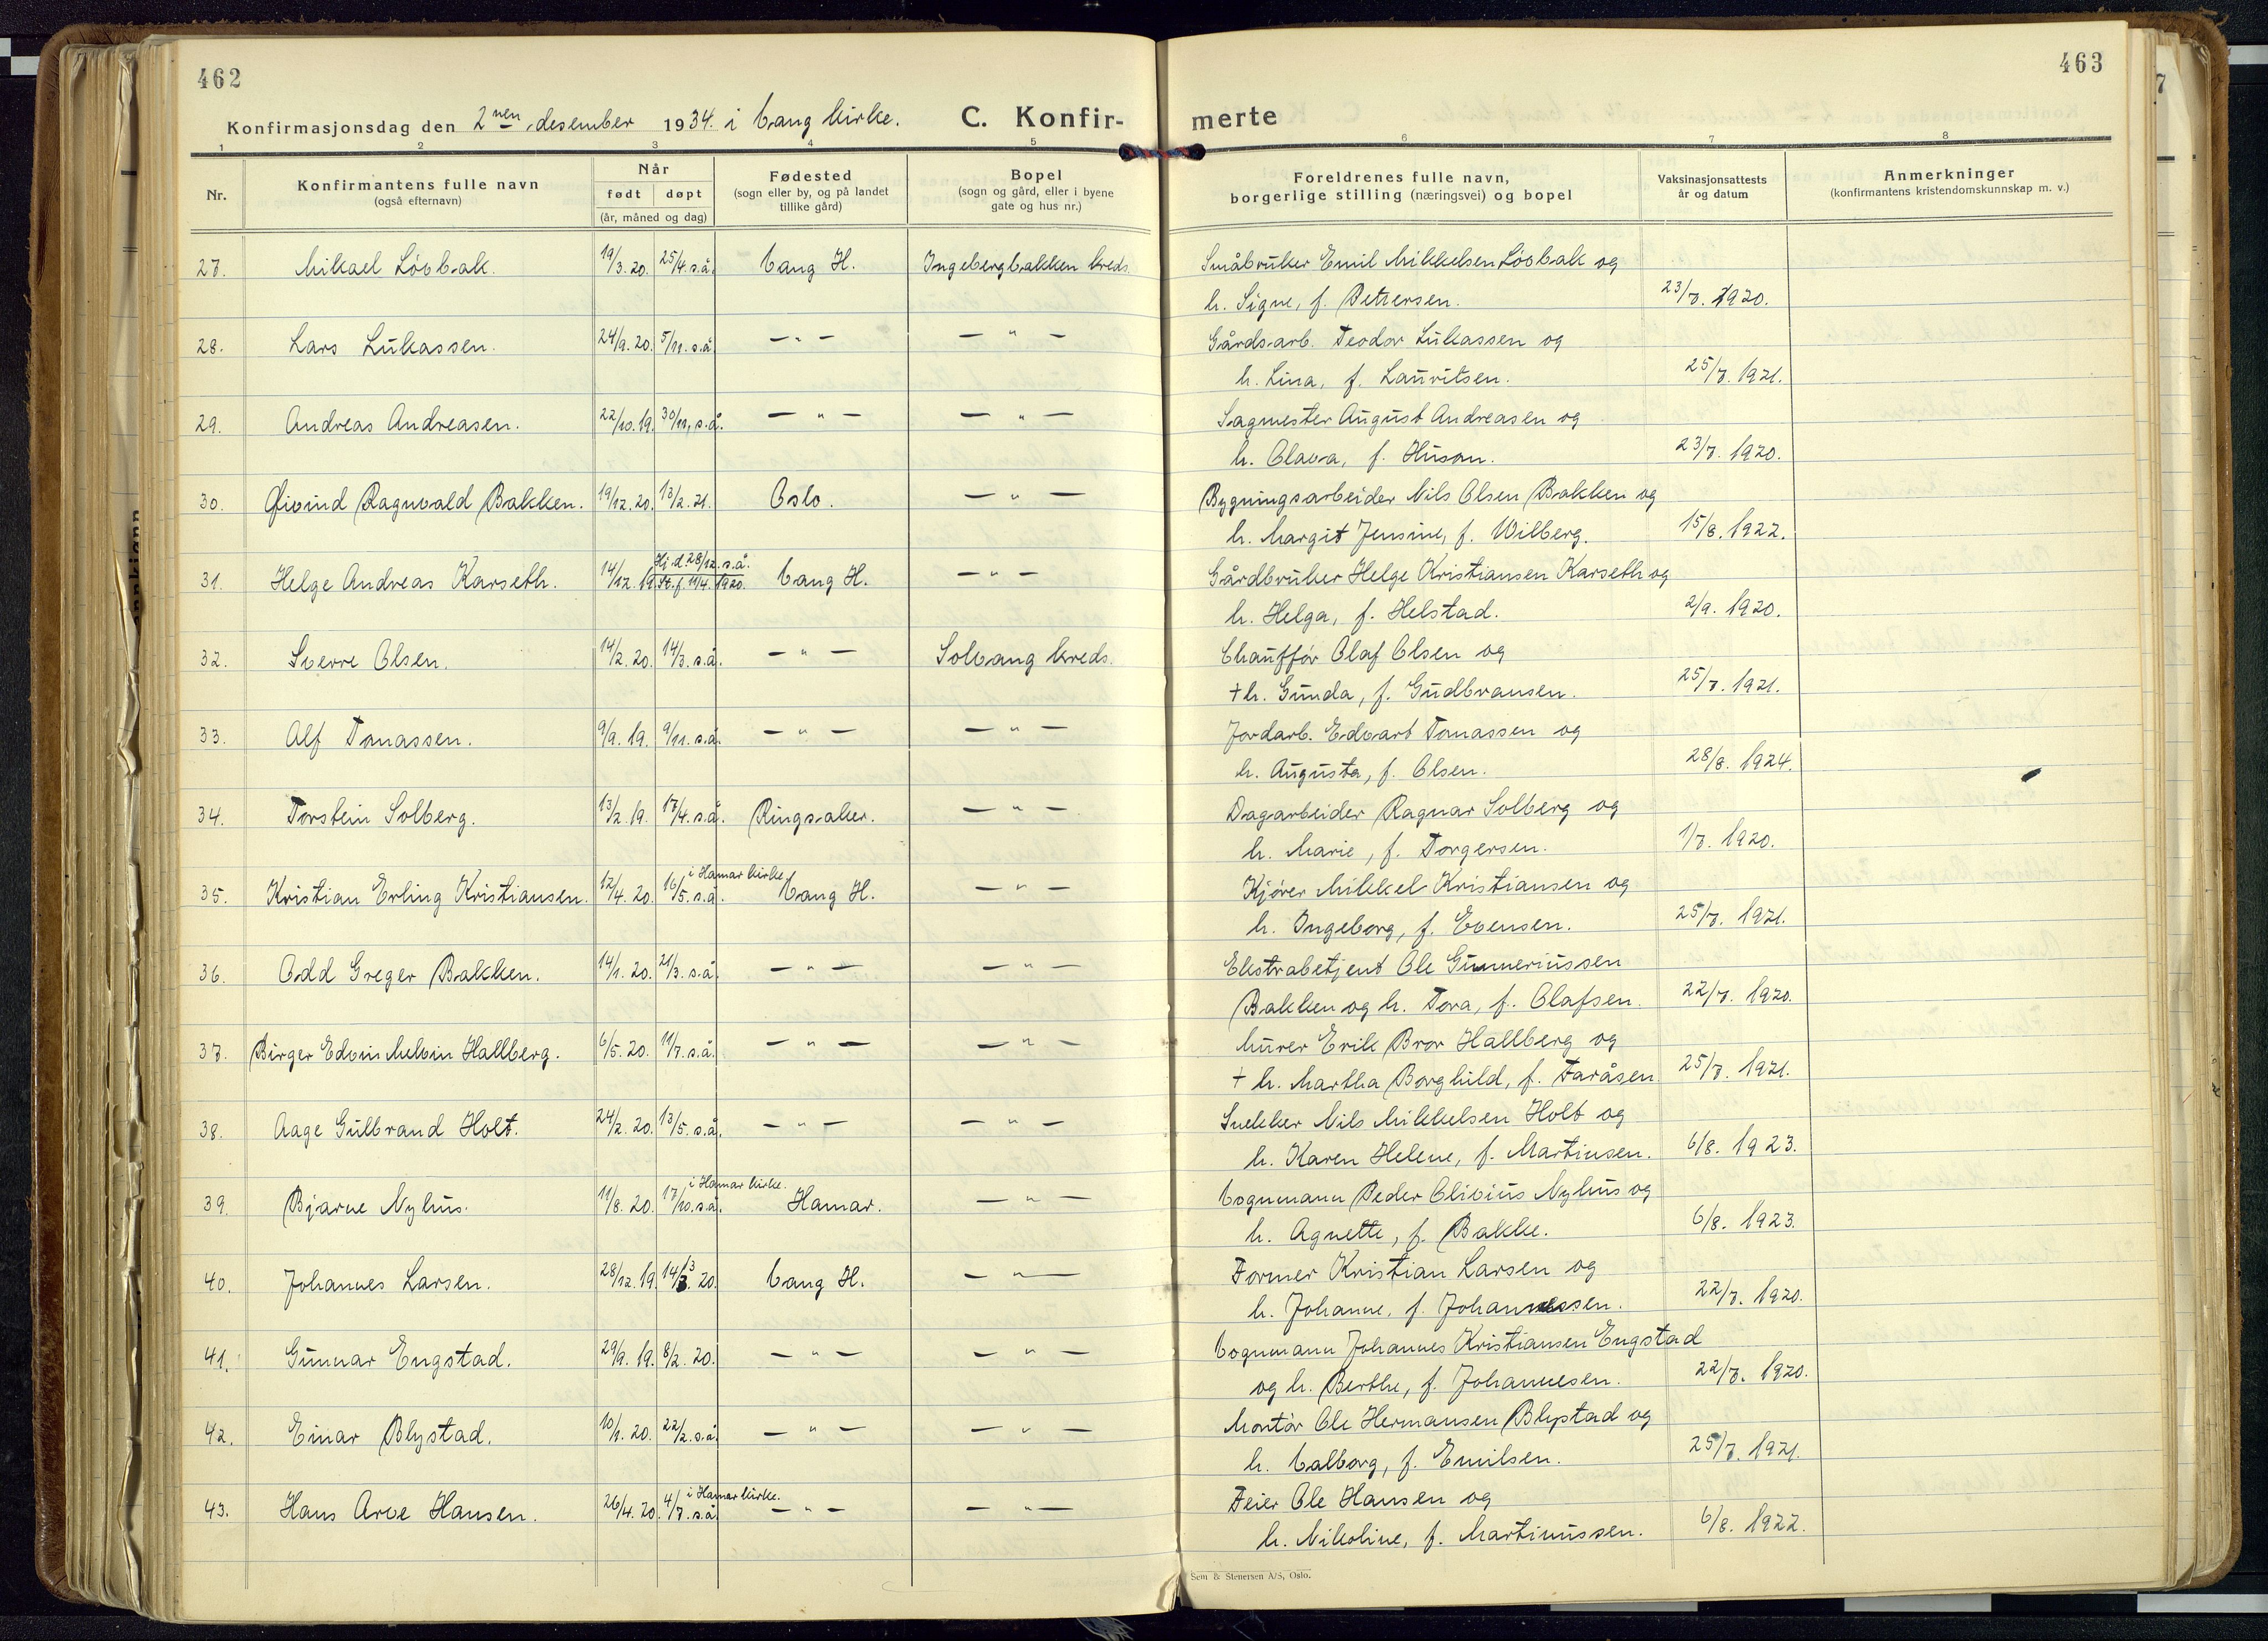 462
463
Konfirmasjonsdag den 2nen desember 1934. i Vang kirke. C. Konfir-
merte
1 2 3 4 5 6 7 8
Nr.
Konfirmantens fulle navn
(også efternavn)
Når
født døpt
(år, måned og dag)
Fødested
(sogn eller by, og på landet
tillike gård)
Bopel
(sogn og gård, eller i byene
gate og hus nr.)
Foreldrenes fulle navn,
borgerlige stilling (næringsvei) og bopel
Vaksinasjonsattests
år og datum
Anmerkninger
(konfirmantens kristendomskunnskap m. v.)
27. Mikael Lövbak. 19/3. 20. 25/4. s.å. Vang H. Ingebergbakken kreds. Småbruker Emil Mikkelsen Lövbak og
h. Signe, f. Pettersen. 23/7. 1920.
28. Lars Lukassen. 24/9. 20. 5/11. s.å. — " — — " — Gårdsarb. Teodor Lukassen og
h. Lina, f. Lauritsen. 25/7. 1921.
29. Andreas Andreasen. 22/10. 19. 30/11. s.å. — " — — " — Sagmester August Andreasen og
h. Olava, f. Huson. 23/7. 1920.
30. Øivind Ragnvald Bakken. 19/12. 20. 13/2. 21. Oslo. — " — Bygningsarbeider Nils Olsen Bakken og
h. Margit Jensine, f. Wilberg. 15/8. 1922.
31. Helge Andreas Karseth. 14/12. 19. Hj.d. 28/12. s.å. St.f. 11/4. 1920. Vang H. — " — Gårdbruker Helge Kristiansen Karseth og
h. Helga, f. Helstad. 2/9. 1920.
32. Sverre Olsen. 14/2. 20. 14/3. s.å. — " — Solvang kreds. Chauffør Olaf Olsen og
+ h. Gunda, f. Gudbransen. 25/7. 1921.
33. Alf Tomassen. 9/9. 19. 9/11. s.å. — " — — " — Jordarb. Edvart Tomassen og
h. Augusta, f. Olsen. 28/8. 1924.
34. Torstein Solberg. 13/2. 19. 17/4. s.å. Ringsaker. — " — Dagarbeider Ragnar Solberg og
h. Marie, f. Torgersen. 1/7. 1920.
35. Kristian Erling Kristiansen. 12/4. 20. 16/5. s.å. i Hamar kirke. Vang H. — " — Kjører Mikkel Kristiansen og
h. Ingeborg, f. Evensen. 25/7. 1921.
36. Odd Greger Bakken. 14/1. 20. 21/3. s.å. — " — — " — Ekstrabetjent Ole Gunneriussen
Bakken og h. Tora, f. Olafsen. 22/7. 1920.
37. Birger Edvin Melvin Hallberg. 6/5. 20. 11/7. s.å. — " — — " — Murer Erik Bror Hallberg og
+ h. Martha Borghild, f. Faråsen. 25/7. 1921.
38. Aage Gulbrand Holt. 24/2. 20. 13/5. s.å. — " — — " — Snekker Nils Mikkelsen Holt og
h. Karen Helene, f. Martinsen. 6/8. 1923.
39. Bjarne Nyhus. 11/8. 20. 17/10. s.å. i Hamar kirke. Hamar. — " — Vognmann Peder Olivius Nyhus og
h. Agnette, f. Bakke. 6/8. 1923.
40. Johannes Larsen. 28/12. 19. 14/3. 20. Vang H. — " — Former Kristian Larsen og
h. Johanne, f. Johannessen. 22/7. 1920.
41. Gunnar Engstad. 29/9. 19. 8/2. 20. — " — — " — Vognmann Johannes Kristiansen Engstad
og h. Berthe, f. Johannesen. 22/7. 1920.
42. Einar Blystad. 10/1. 20. 22/2. s.å. — " — — " — Montör Ole Hermansen Blystad og
h. Valborg, f. Emilsen. 25/7. 1921.
43. Hans Arve Hansen. 26/4. 20. 4/7. s.å. i Hamar kirke. — " — — " — Feier Ole Hansen og
h. Nikoline, f. Martinussen. 6/8. 1922.
Sem & Stenersen A/S, Oslo.